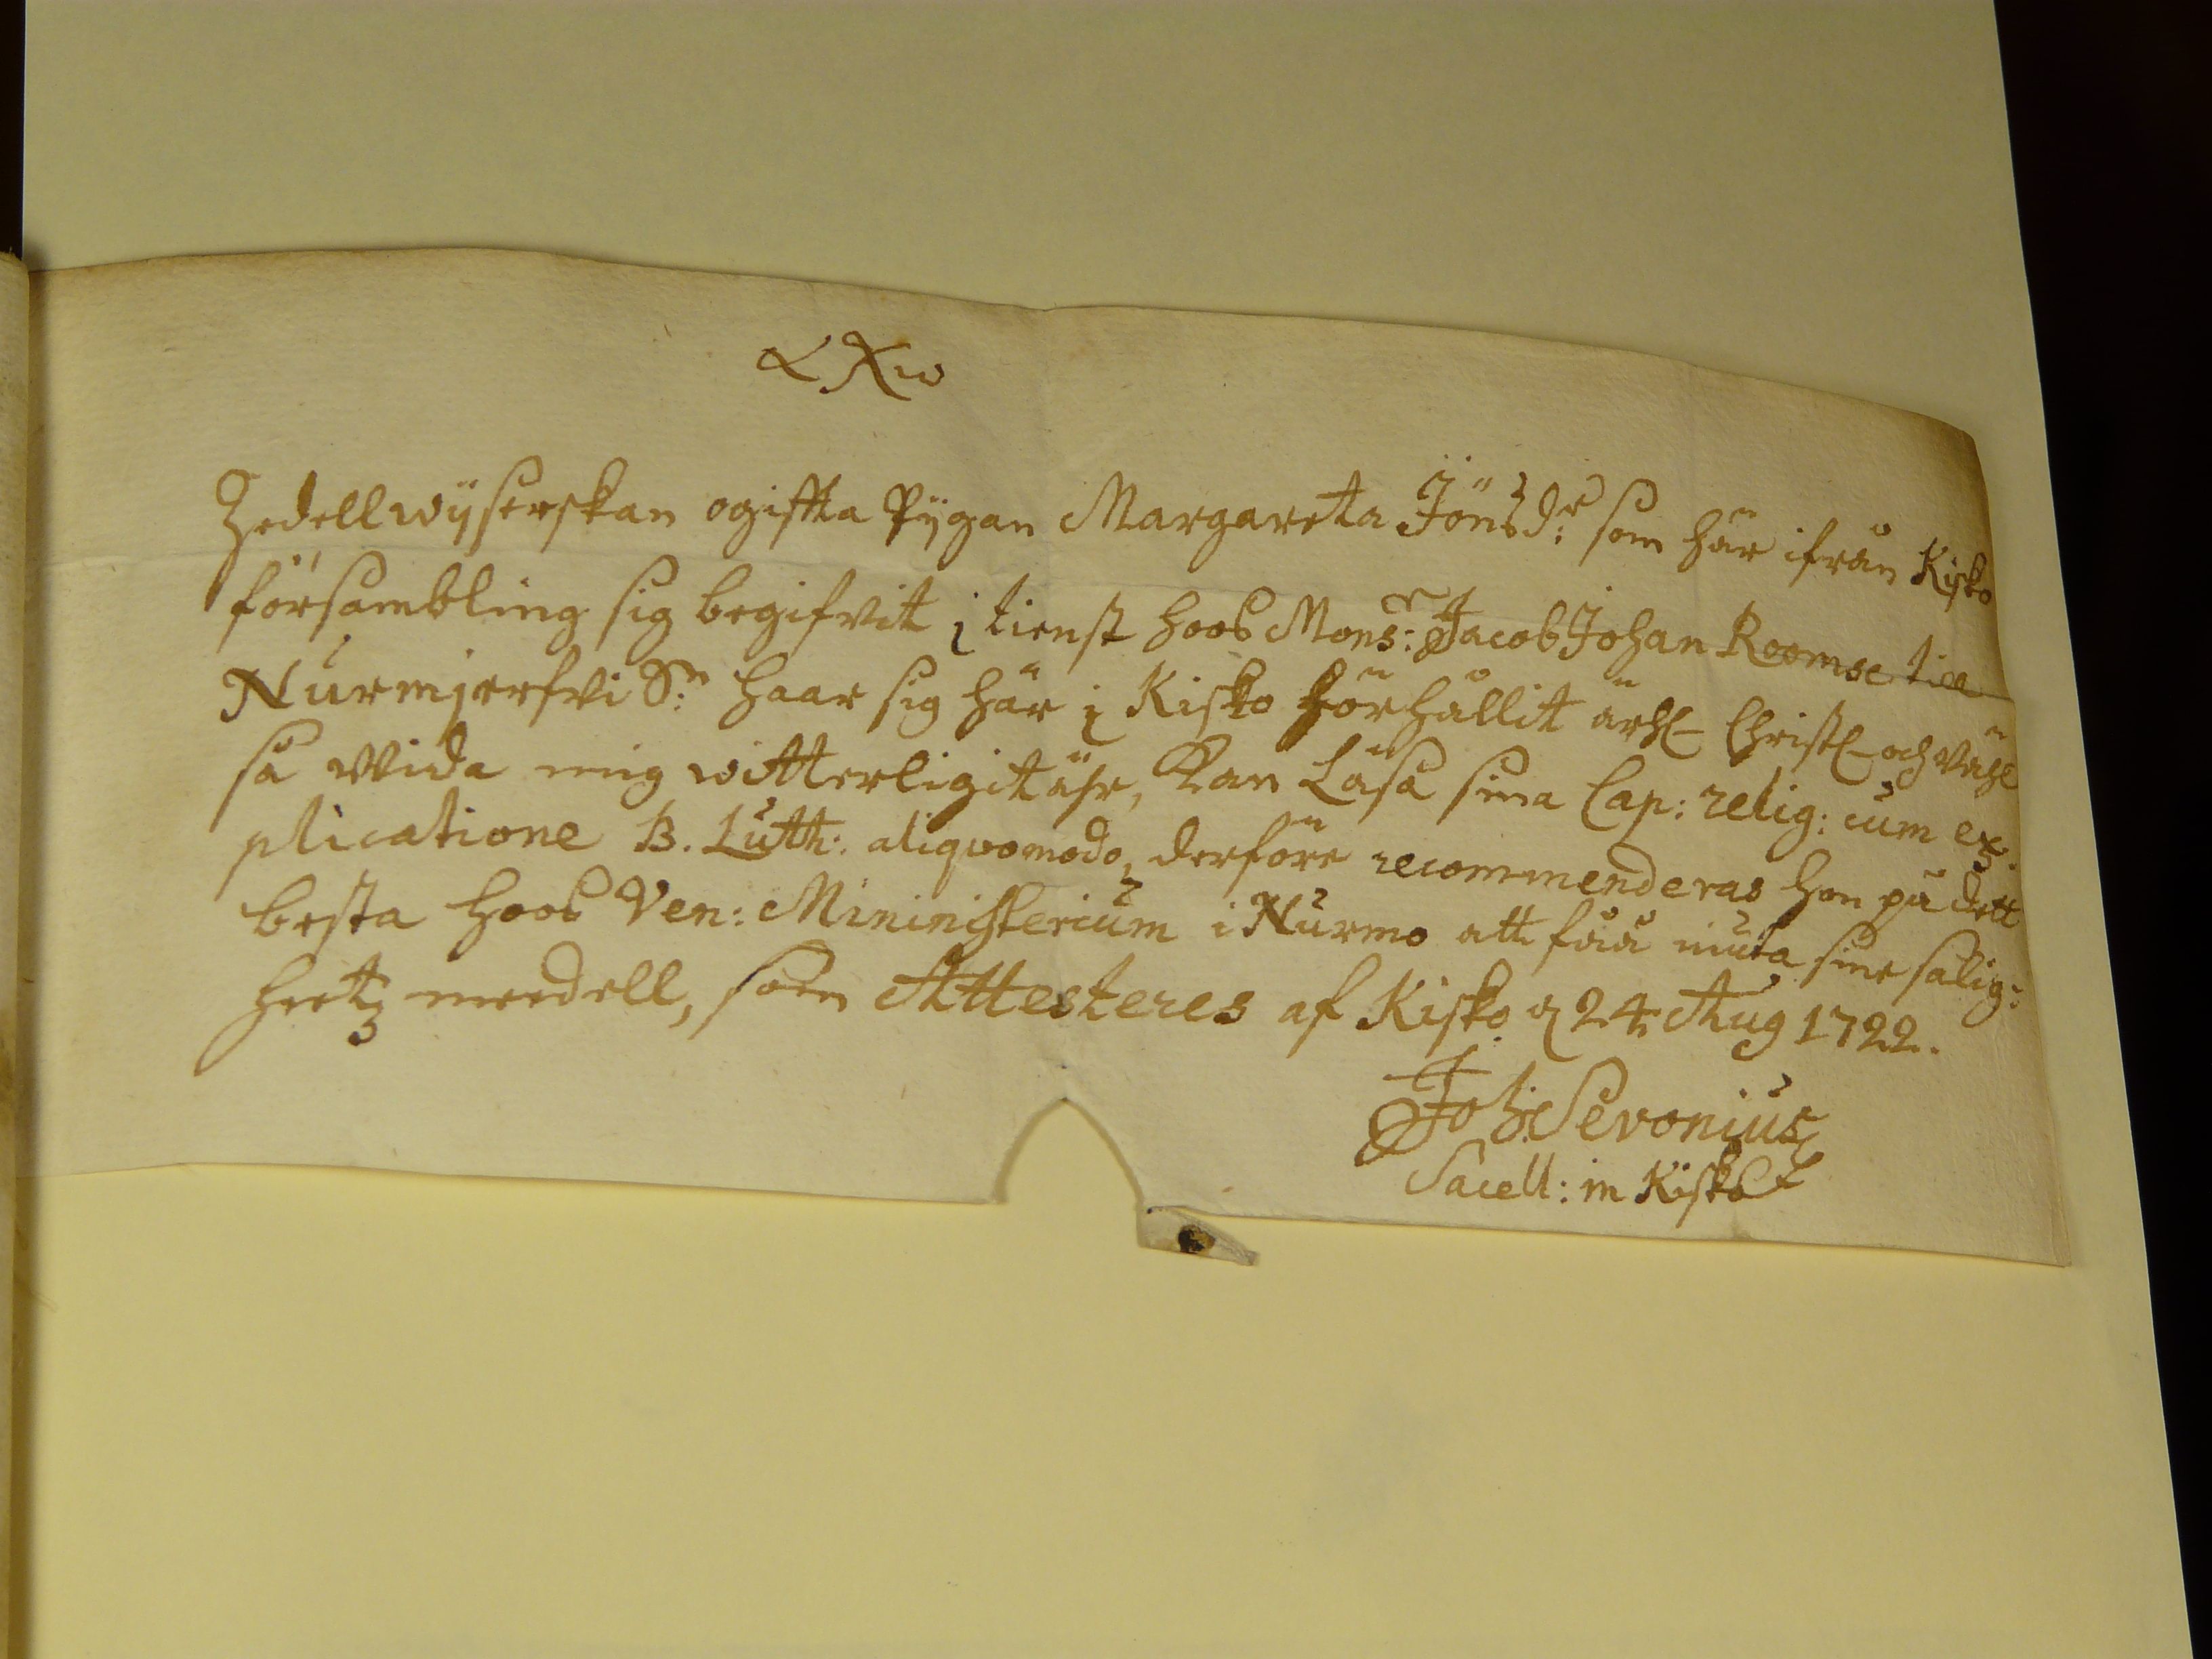 α X ω
Zedellwÿserskan ogiffta Pÿgan Margareta Jönsdr: som här ifrån Kisko
försambling sig begifvit i tienst hoos Monsr: Jacob Johan Roomse till
Nurmjerfvi Sn: haar sig här i Kisko förhållit ärl: Christl: och wähl
så wida mig witterligit ähr, Kan Läsa sina Cap: relig: cum ex-
plicatione B. Luth: aliqvomodo, derföre recommenderas hon på dett
besta hoos Ven: Mininisterium i Nurmo att fåå niuta sine salig-
heetz meedell, som Attesteres af Kisko d 24 Aug 1722.
Joh: Sevonius
Sacell: in Kisko